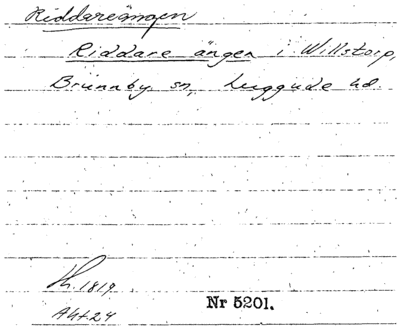 Riddareängen
Riddare ängen i Willstorp,
Brunnby sn, Luggude hd.
Kh. 1819.
Akt 24
Nr 5201.